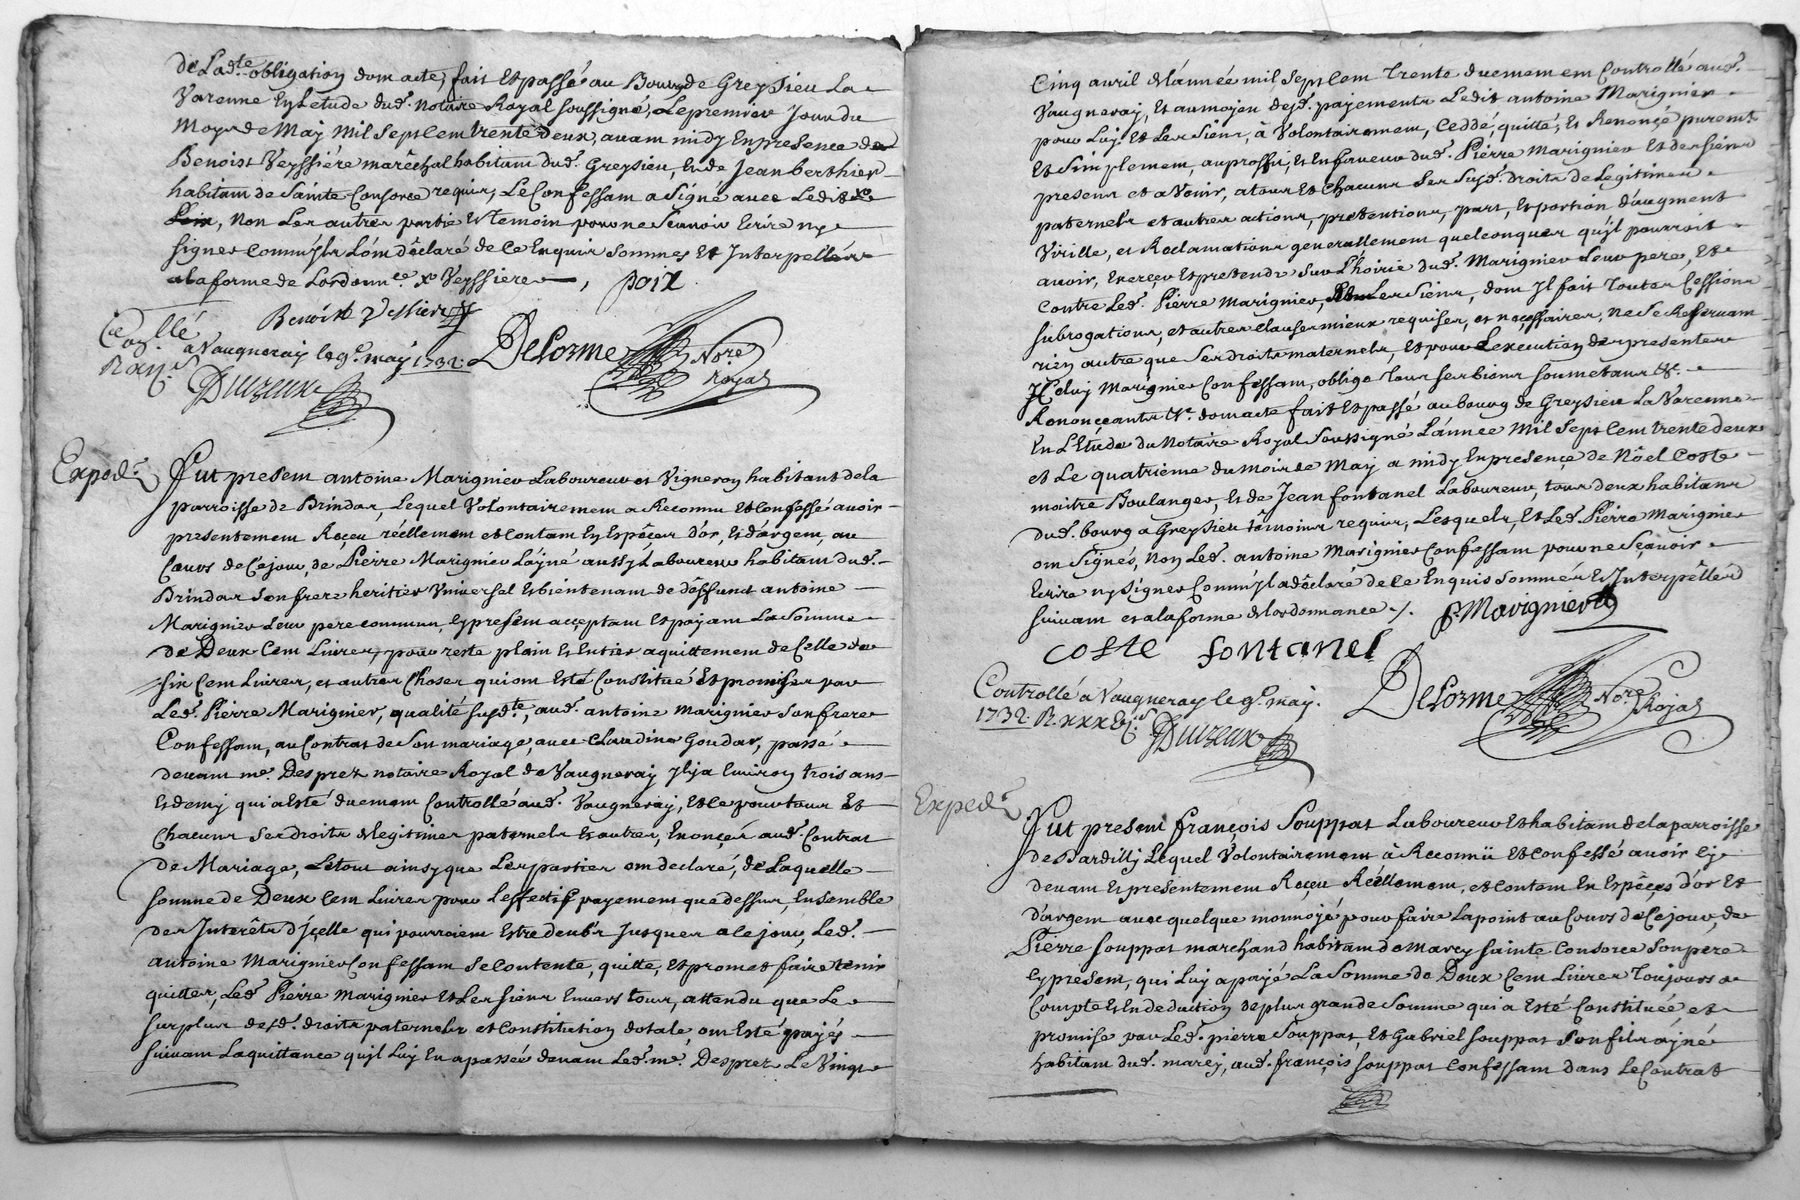 de Lad.te obligation dont acte, fait Et passé au Bourg de Greysieu La
Varenne En Letude dud. Notaire Royal soussigné, Le premier Jour du
Moys de May Mil Sept Cent trente deux, avant midy En presence de
Benoist Veyssiére maréchal habitant dud. Greysieu, Et de Jean berthier
habitant de Sainte Consorce requis, Le Confessant a Signé avec Ledit
, Non Les autres partie Et temoin pour ne Scavoir Ecrire ny
signer Comm'ils L'ont déclaré de Ce Enquis Sommes Et Interpellés
a la forme de Lordonn.ce x Veyssiere , poix
Benoist Vessiere
Con.llé
a Vaugneray le 9e may 1732.
Duizeux
Delorme No.re
Royal
Exped.e
Fut present antoine Marignier Laboureur et Vigneron habitant de la
parroisse de Brindas, Lequel Volontairement a Reconnu Et Confessé avoir
presentement Reçeu réellement et Contant En Espéces d'or, Et d'argent au
Cours de Cejour, de Pierre Marignier L'ayné aussy Laboureur habitant dud.
Brindas Son frere heritier Universel Et bientenant de déffunct antoine
Marignier Leur pere commun, Cy present acceptant Et payant La Somme
de Deux Cent Livres, pour reste plain Et Entier aquittement de Celle de
six Cent Livres, et autres Choses qui ont Esté Constitué Et promises par
Led. Pierre Marignier, qualité susd.te, aud. antoine Marignier Son frere
Confessant, au Contrat de Son mariage, avec Claudine Goudar, passé
devant me. Desprez notaire Royal de Vaugneray Il y a Environ trois ans
Et demy qui a Esté duement Controllé aud. Vaugneray, Et Ce pour tous Et
Chacuns Ses droits de legitimes paternels Et autres, Enonçés aud. Contrat
de Mariage, Letout ainsy que Les parties ont declaré, de Laquelle
somme de Deux Cent Livres pour L'effectif payement que dessus, Ensemble
des Interêts d'Içelle qui pourroient Estre deub's Jusques a Ce jour, Led.
antoine Marignier Confessant Se Contente, quitte, Et promet faire tenir
quitter, Led. Pierre Marignier Et Les siens Envers tous, attendu que Le
surplus desd. droits paternels et Constitution dotale, ont Esté payés
suivant Laquittance qu'il Luy En a passée devant Led. me. Desprez Le Vingt
Cinq avril de l'année mil Sept Cent trente duement Controllé aud.
Vaugneray, Et au moyen desd. payements Ledit antoine Marignier
pour Luy Et Les Siens, à Volontairement, Ceddé, quitté, Et Renonçé purem.t
Et Simplement, au proffit, Et En faveur dud. Pierre Marignier Et des siens
presens et a Venir, a tous Et Chacuns Ses Susd. droits de Legitimes
paternels et autres actions, pretentions, part, Et portion d'augment
Virille, et Reclamations generallement quelconques qu'il pourroit
avoir, Exerçer Et pretendre Sur L'hoirie dud. Marignier Leur pere, Et
Contre Led. Pierre Marignier, Les Siens, dont Il fait Toutes Cessions
subrogations, et autres Clauses mieux requises, et neçessaires, ne Se Reservant
rien autre que Ses droits maternels, Et pour L'execution des presentes
Icelluy Marignier Confessant, oblige tous ses biens soumetans &c.
Renonçeants &c. dont acte fait Et passé au bourg de Greysieu La Varenne
En L'Etude du Notaire Royal Soussigné L'annee Mil Sept Cent trente deux
et Le quatriéme du mois de May a midy En presençe de Nôel Coste
maitre Boulanger, Et de Jean fontanel Laboureur, tous deux habitans
dud. bourg a Greysieu témoins requis, Lesquels, Et Led. Pierre Marignier
ont Signés, Non Led. antoine Marignier Confessant pour ne Sçavoir
Ecrire ny Signer Comm'Il a déclaré de Ce Enquis Sommés Et Interpellés
suivant et a la forme de Lordonnance ./. P. Marignier
Coste fontanel
Controllé a Vaugneray le 9e may
1732. R. xxx
Duizeux
Delorme No.re
Royal
Exped.e
Fut present françois Souppat Laboureur Et habitant de la parroisse
de Dardilly Lequel Volontairement à Reconnü Et Confessé avoir Cy
devant Et presentement Reçeu Réellement, et Contant En Espéçes d'or Et
d'argent avec quelque monnoyé pour faire Lapoint au Cours de Cejour, de
Pierre Souppat marchand habitant de Marcy Sainte Consorce Son pere
Cy present, qui Luy a payé La Somme de Deux Cent Livres toujours a
Compte Et En deduction de plus grande Somme qui a Esté Constituée, et
promise par Led. pierre Souppat Et Gabriel Souppat Son fils ayné
habitant dud. marcy, aud. françois Souppat Confessant dans Le Contrat